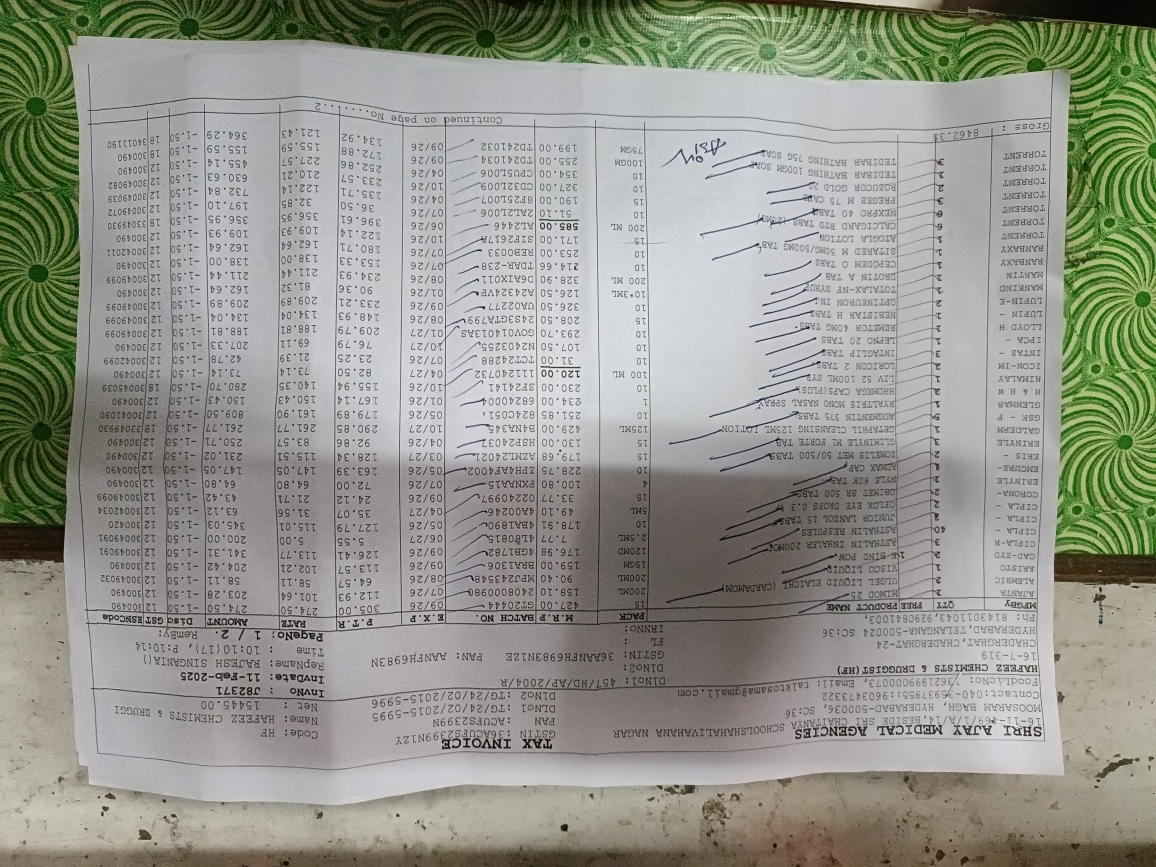 SHRI AJAY MEDICAL AGENCIES TAX INVOICE
16-11-469/1/A/14, BESIDE SRI CHAITANYA SCHOOL SHALIVAHANA NAGAR GSTIN : 36ACUFS2399N1ZY Code: HF
MOOSARAM BAGH, HYDERABAD-500036, SC:36 PAN : ACUFS2399N Name: HAFEEZ CHEMISTS & DRUGGI
Contact:040-35937955::9603473322 DlNO1: TG/24/02/2015-5995 Net : 15445.00
FoodLicNo: 13621999000073, Email: talktosama@gmail.com DlNO2 : TG/24/02/2015-5996 InvNo : J82371
HAFEEZ CHEMISTS & DRUGGIST (HF) DlNO1: 457/HD/AP/2004/R InvDate: 11-Feb-2025
16-7-319 DlNO2: RepName: RAJESH SINGANIA()
CHADERGHAT, CHADERGHAT-24 GSTIN: 36AANFH6983N1ZE PAN: AANFH6983N Time : 10:10(17), P:10:14
HYDERABAD, TELANGANA-500024 SC:36 FL : PageNo: 1 / 2. RemBy:
PH: 8143011043, 9290841003, IRNNO:
MFGBY QTY FREE PRODUCT NAME PACK M.R.P BATCH NO. E.X.P P.T.R RATE AMOUNT Disc1 GST HSNCode
AJANTA 1 MIMOD 25 15 427.00 GP20444 09/26 305.00 274.50 274.50 -1.50 12 300490
ALEMBIC 2 ULGEL LIQUID ELAICHI (CARDAMOM) 200ML 158.10 03/26 112.93 101.64 203.28 -1.50 12 300490
ARISTO 1 VISCO LIQUID 200ML 90.40 MP24G3548 08/26 64.57 58.11 58.11 -1.50 12 30049032
CAD-ZYD 2 K BIND POW 15GM 159.00 BRA1306 09/26 113.57 102.21 204.42 -1.50 12 300490
CIPLA-R 3 ASTHALIN INHALER 200MD 120MD 176.98 AGB1782 09/26 126.41 113.77 341.31 -1.50 12 30049091
CIPLA - 40 ASTHALIN RESPULES 2.5ML 7.77 ILP0815 06/27 5.55 5.00 200.00 -1.50 12 30049091
CIPLA - 3 JUNIOR LANZOL 15 TABS 10 178.91 ABA1890 05/26 127.79 115.01 345.03 -1.50 12 300420
CIPLA - 2 CIFLOX EYE DROPS 0.3 5ML 49.10 4A00246 06/26 35.07 31.56 63.12 -1.50 12 30042034
CORONA- 2 OBIMET SR 500 TABS 15 33.77 02240997 09/26 24.12 21.71 43.42 -1.50 12 30049099
ERYINLE 1 NYLE 60K TAB 4 100.80 PNXAA15 07/26 72.00 64.80 64.80 -1.50 12 300490
EMCURE- 1 AIMAX CAP 10 228.75 RPHA4PAF002 05/26 163.39 147.05 147.05 -1.50 12 300490
ERIS - 2 ZOMELIS MET 50/500 TABS 15 179.68 AZML24021 03/27 128.34 115.51 231.02 -1.50 12 300490
ERYINLE 3 GLIMIYLE M1 FORTE TAB 15 130.00 HSP2437 04/26 92.86 83.57 250.71 -1.50 12 300490
GALDERM 1 CETAPHIL CLEANSING 125ML LOTION 125ML 429.00 B4NA345 10/27 290.85 261.77 261.77 -1.50 18 33049930
GSK - F 5 AUGMENTIN 375 TABS 10 251.85 824C051 05/26 179.89 161.90 809.50 -1.50 12 30041090
GLENMAR 1 RYALTRIS MONO NASAL SPRAY 1 234.00 68240004 08/26 167.14 150.43 150.43 -1.50 12 300490
H & H W 2 HHOMEGA CAPS(PLUS) 10 230.00 SF24141 01/26 155.94 140.35 280.70 -1.50 18 30045039
HIMALAY 1 LIV 52 100ML SYP 100 ML 120.00 112400732 04/27 82.50 73.14 73.14 -1.50 12 300490
ICON-1M 2 LORICON 2 TABS 10 31.00 TCT24288 07/26 23.25 21.39 42.78 -1.50 12 30042099
INTAS - 3 INTAGLIP TABS 10 107.50 N2403255 10/27 76.79 69.11 207.33 -1.50 12 300490
IPCA - 1 LEFNO 20 TABS 10 293.70 GOV01401AS 01/27 209.79 188.81 188.81 -1.50 12 30049099
LLOYD H 1 40MG TABS 15 208.50 24S3GTA799 08/26 148.93 134.04 134.04 -1.50 12 300490
LUPIN - 1 NEBISTAR H TABS 10 326.50 UA00277 09/26 233.21 209.89 209.89 -1.50 12 30049099
LUPIN-E 2 OPTINEURON INJ 10*3ML 126.50 A24324ZVF 07/26 90.36 81.32 162.64 -1.50 12 300490
MANKIND 1 TOTALAX-NF SYRUP 200 ML 328.90 DAAIX011 08/26 234.93 211.44 211.44 -1.50 12 30049099
MARTIN 1 DROTIN A TAB 10 214.66 TDAR-238 07/26 153.33 138.00 138.00 -1.50 12 300490
RANBAXY 1 CEPODEM O TABS 10 253.00 REB033 09/26 180.71 162.64 162.64 -1.50 12 30042011
RANBAXY 1 SITARED M 50MG/500MG TAB 15 171.01 SIT2F617A 06/26 122.14 109.93 109.93 -1.50 12 300490
TORRENT 1 ATOGLA LOTION 200 ML 585.00 AL2446 10/26 396.61 356.95 356.95 -1.50 18 33049930
TORRENT 6 CALCIGARD RTD TABS (20MG) 10 51.10 2AL2L006 07/26 36.50 32.85 197.10 -1.50 12 30049072
TORRENT 6 NEXPRO 40 TABS 15 190.00 8F25L007 07/26 135.71 122.14 732.84 -1.50 12 30049039
TORRENT 3 PREGEB M 75 CAPS 10 327.00 10/26 233.57 210.21 630.63 -1.50 12 30049082
TORRENT 2 ROZUCOR GOLD 20 10 354.00 CPU5L006 04/26 252.86 227.57 455.14 -1.50 12 300490
TORRENT 1 TEDIBAR BATHING 100GM SOAP 100GM 255.00 TD241034 09/26 172.88 155.59 155.59 -1.50 18 300490
TORRENT 3 TEDIBAR BATHING 75G SOAP 75GM 199.00 TD241032 09/26 134.92 121.43 364.29 -1.50 18 34011190
Gross : 8462.35
Continued on page No.......2